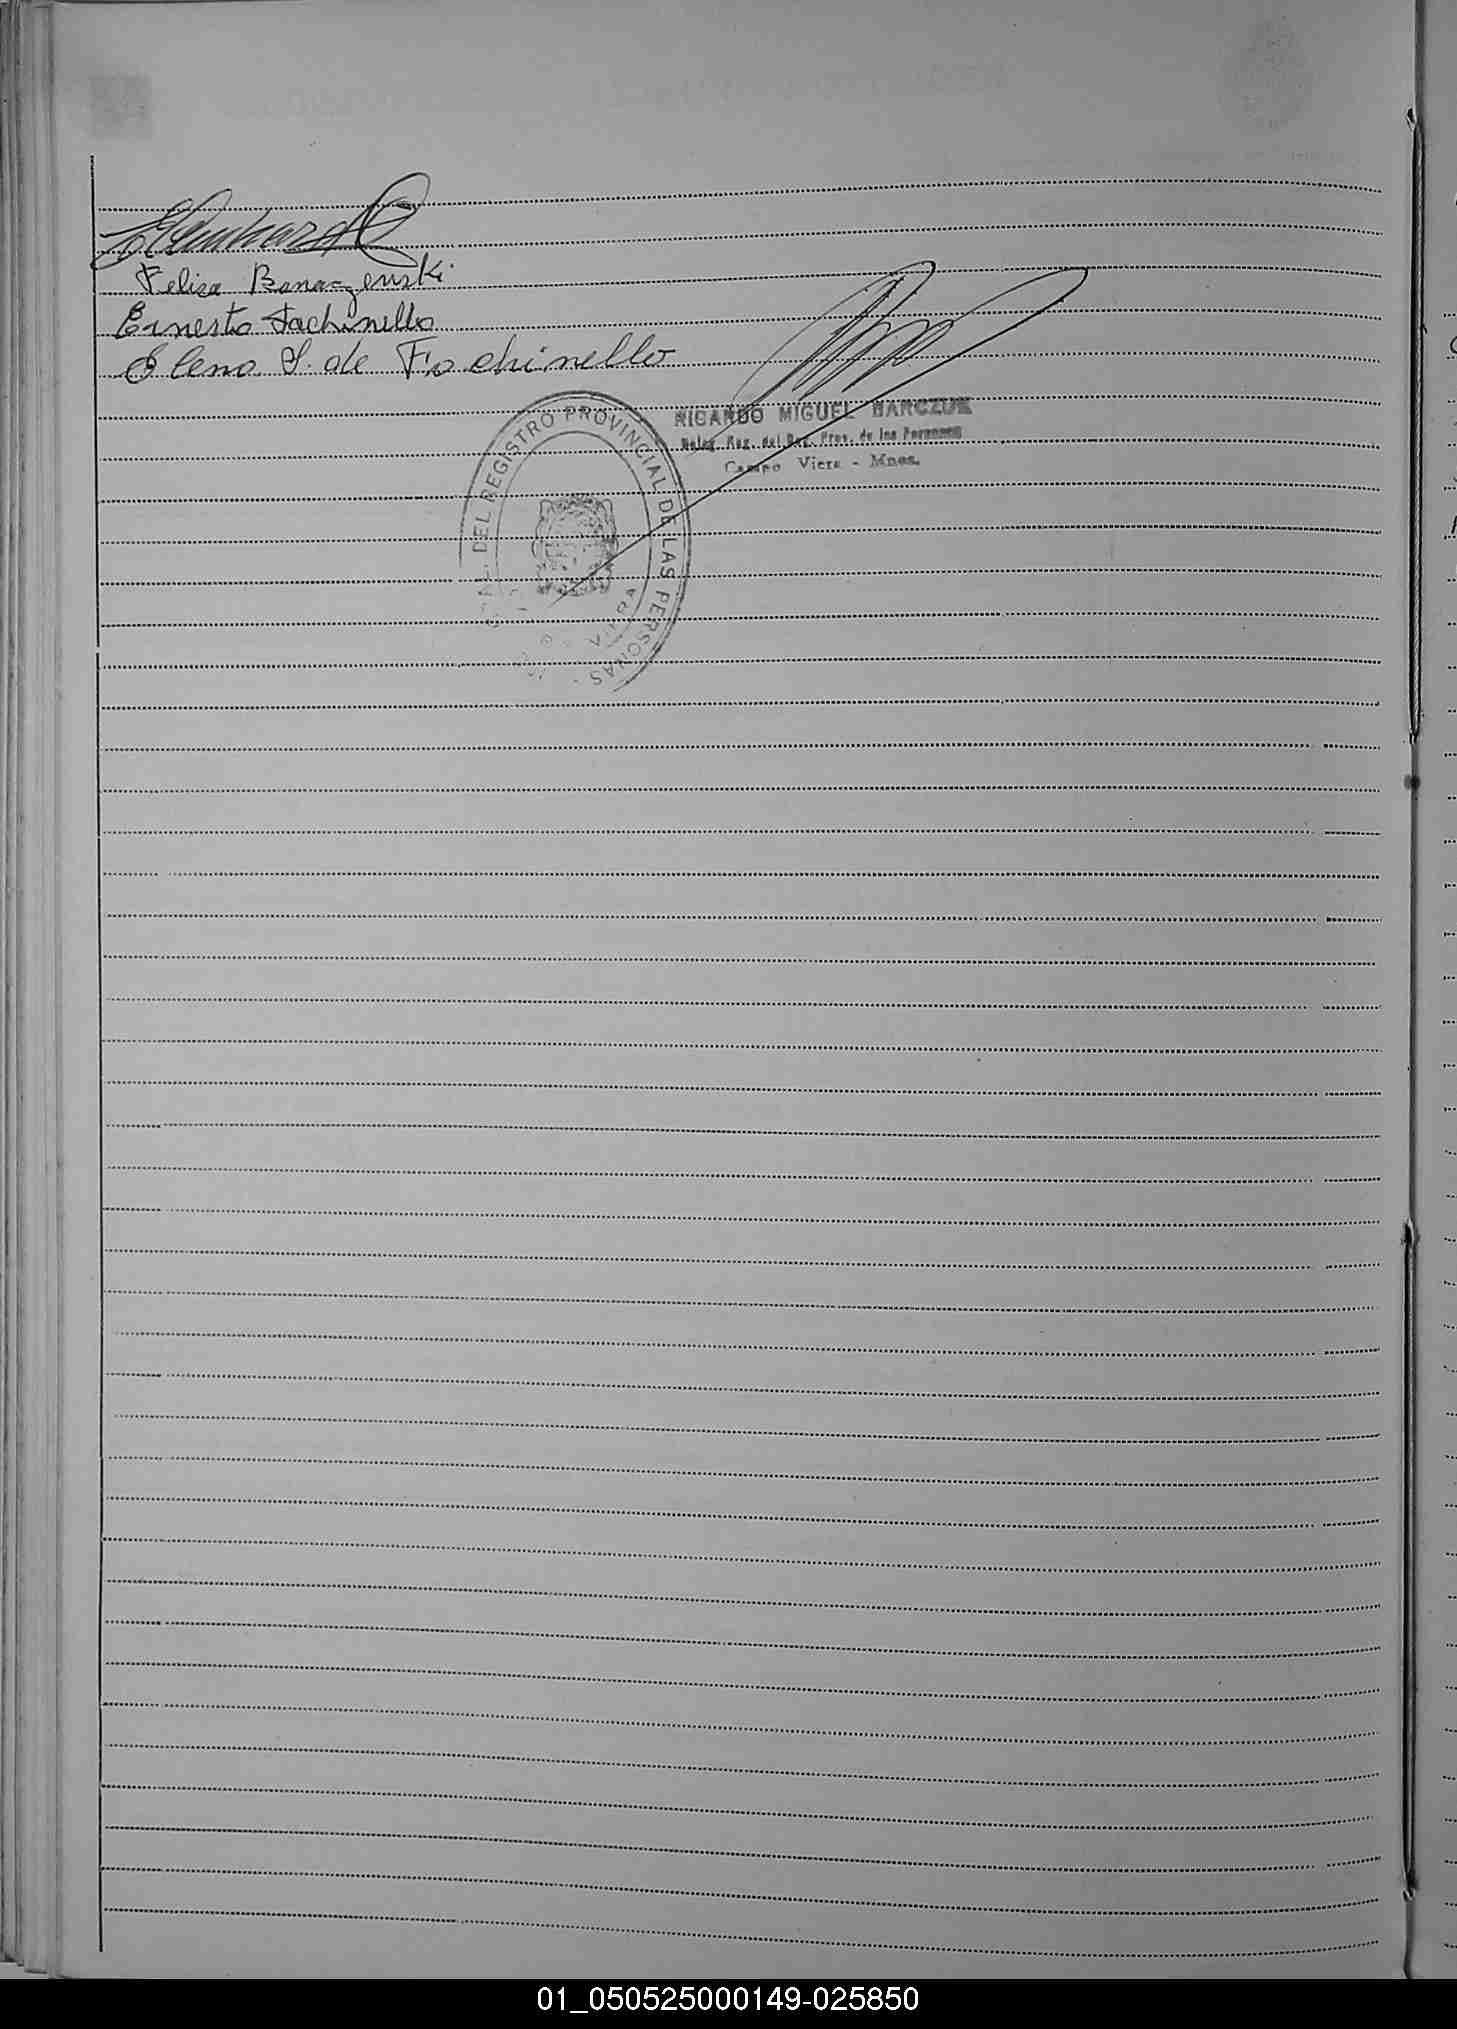 Felisa Banaczenski
Ernesto Fachinello
Elena S. de Fachinello
RICARDO MIGUEL BARCZUK
Deleg. Reg. del Reg. Prov. de las Personas
Campo Viera - Mnes.
DEL REGISTRO PROVINCIAL DE LAS PERSONAS
01_050525000149-025850